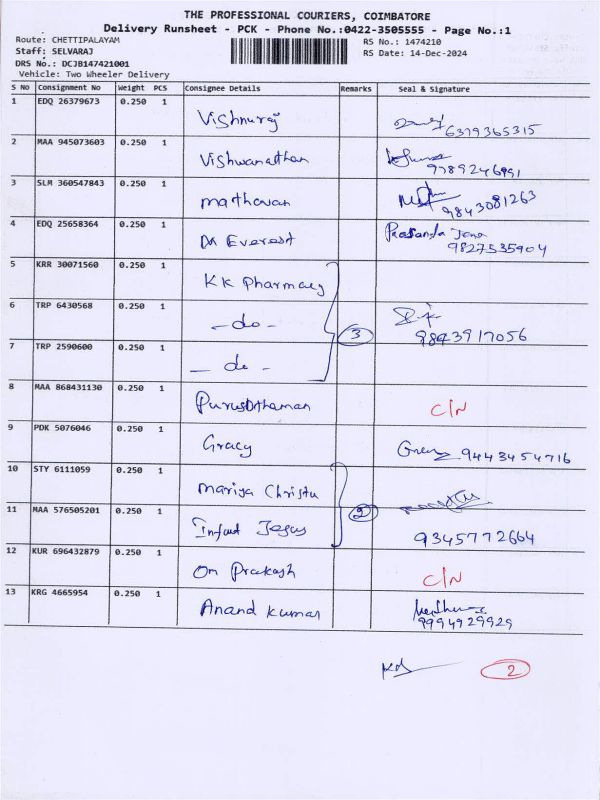 THE PROFESSIONAL COURIERS, COIMBATORE
Delivery Runsheet - PCK - Phone No.:0422-3505555 - Page No.:1
Route: CHETTIPALAYAM
Staff: SELVARAJ
DRS No.: DCJB147421001
Vehicle: Two Wheeler Delivery
RS No.: 1474210
RS Date: 14-Dec-2024
S No Consignment No Weight PCS Consignee Details Remarks Seal & Signature
1 EDQ 26379673 0.250 1 Vishnuraj 6379365315
2 MAA 945073603 0.250 1 Vishwanathan 9789246991
3 SLM 360547843 0.250 1 mathavan 9843081263
4 EDQ 25658364 0.250 1 Dr Everest Prasanda Jena 9827535904
5 KRR 30071560 0.250 1 KK Pharmacy
6 TRP 6430568 0.250 1 - do - 3 9843917056
7 TRP 2590600 0.250 1 - do -
8 MAA 868431130 0.250 1 Purusothaman C/N
9 PDK 5076046 0.250 1 Gracy 9443454716
10 STY 6111059 0.250 1 mariya Christu
11 MAA 576505201 0.250 1 Infant Jesus 2 9345772664
12 KUR 696432879 0.250 1 Om Prakash C/N
13 KRG 4665954 0.250 1 Anand Kumar 9994929929
2